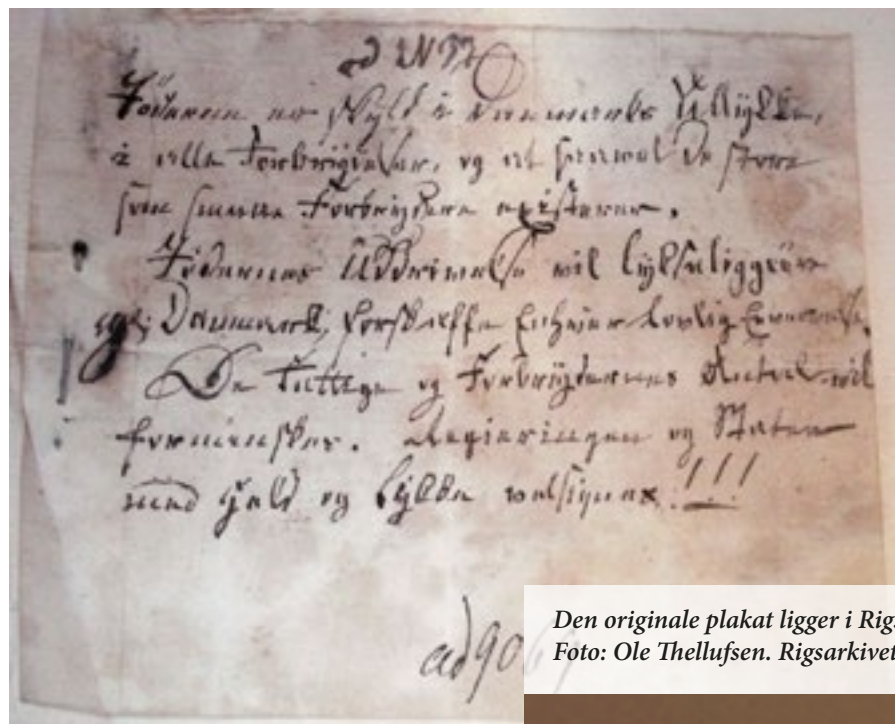 Jøderne er skyld i Danmarks Ulykke,
i alle Forbrydelser, og at saavel de store
som smaae Forbrydere existerer.
Jødernes Uddrivelse vil lyksaliggiøre
Danmark, forskaffe Enhver lovlig
De Fattige og Forbrydernes Antal vil
formindskes. Regieringen og Staten
med Held og Lykke velsignes !!!
ad 9069
Den originale plakat ligger i Rigs
Foto: Ole Thellufsen. Rigsarkivet